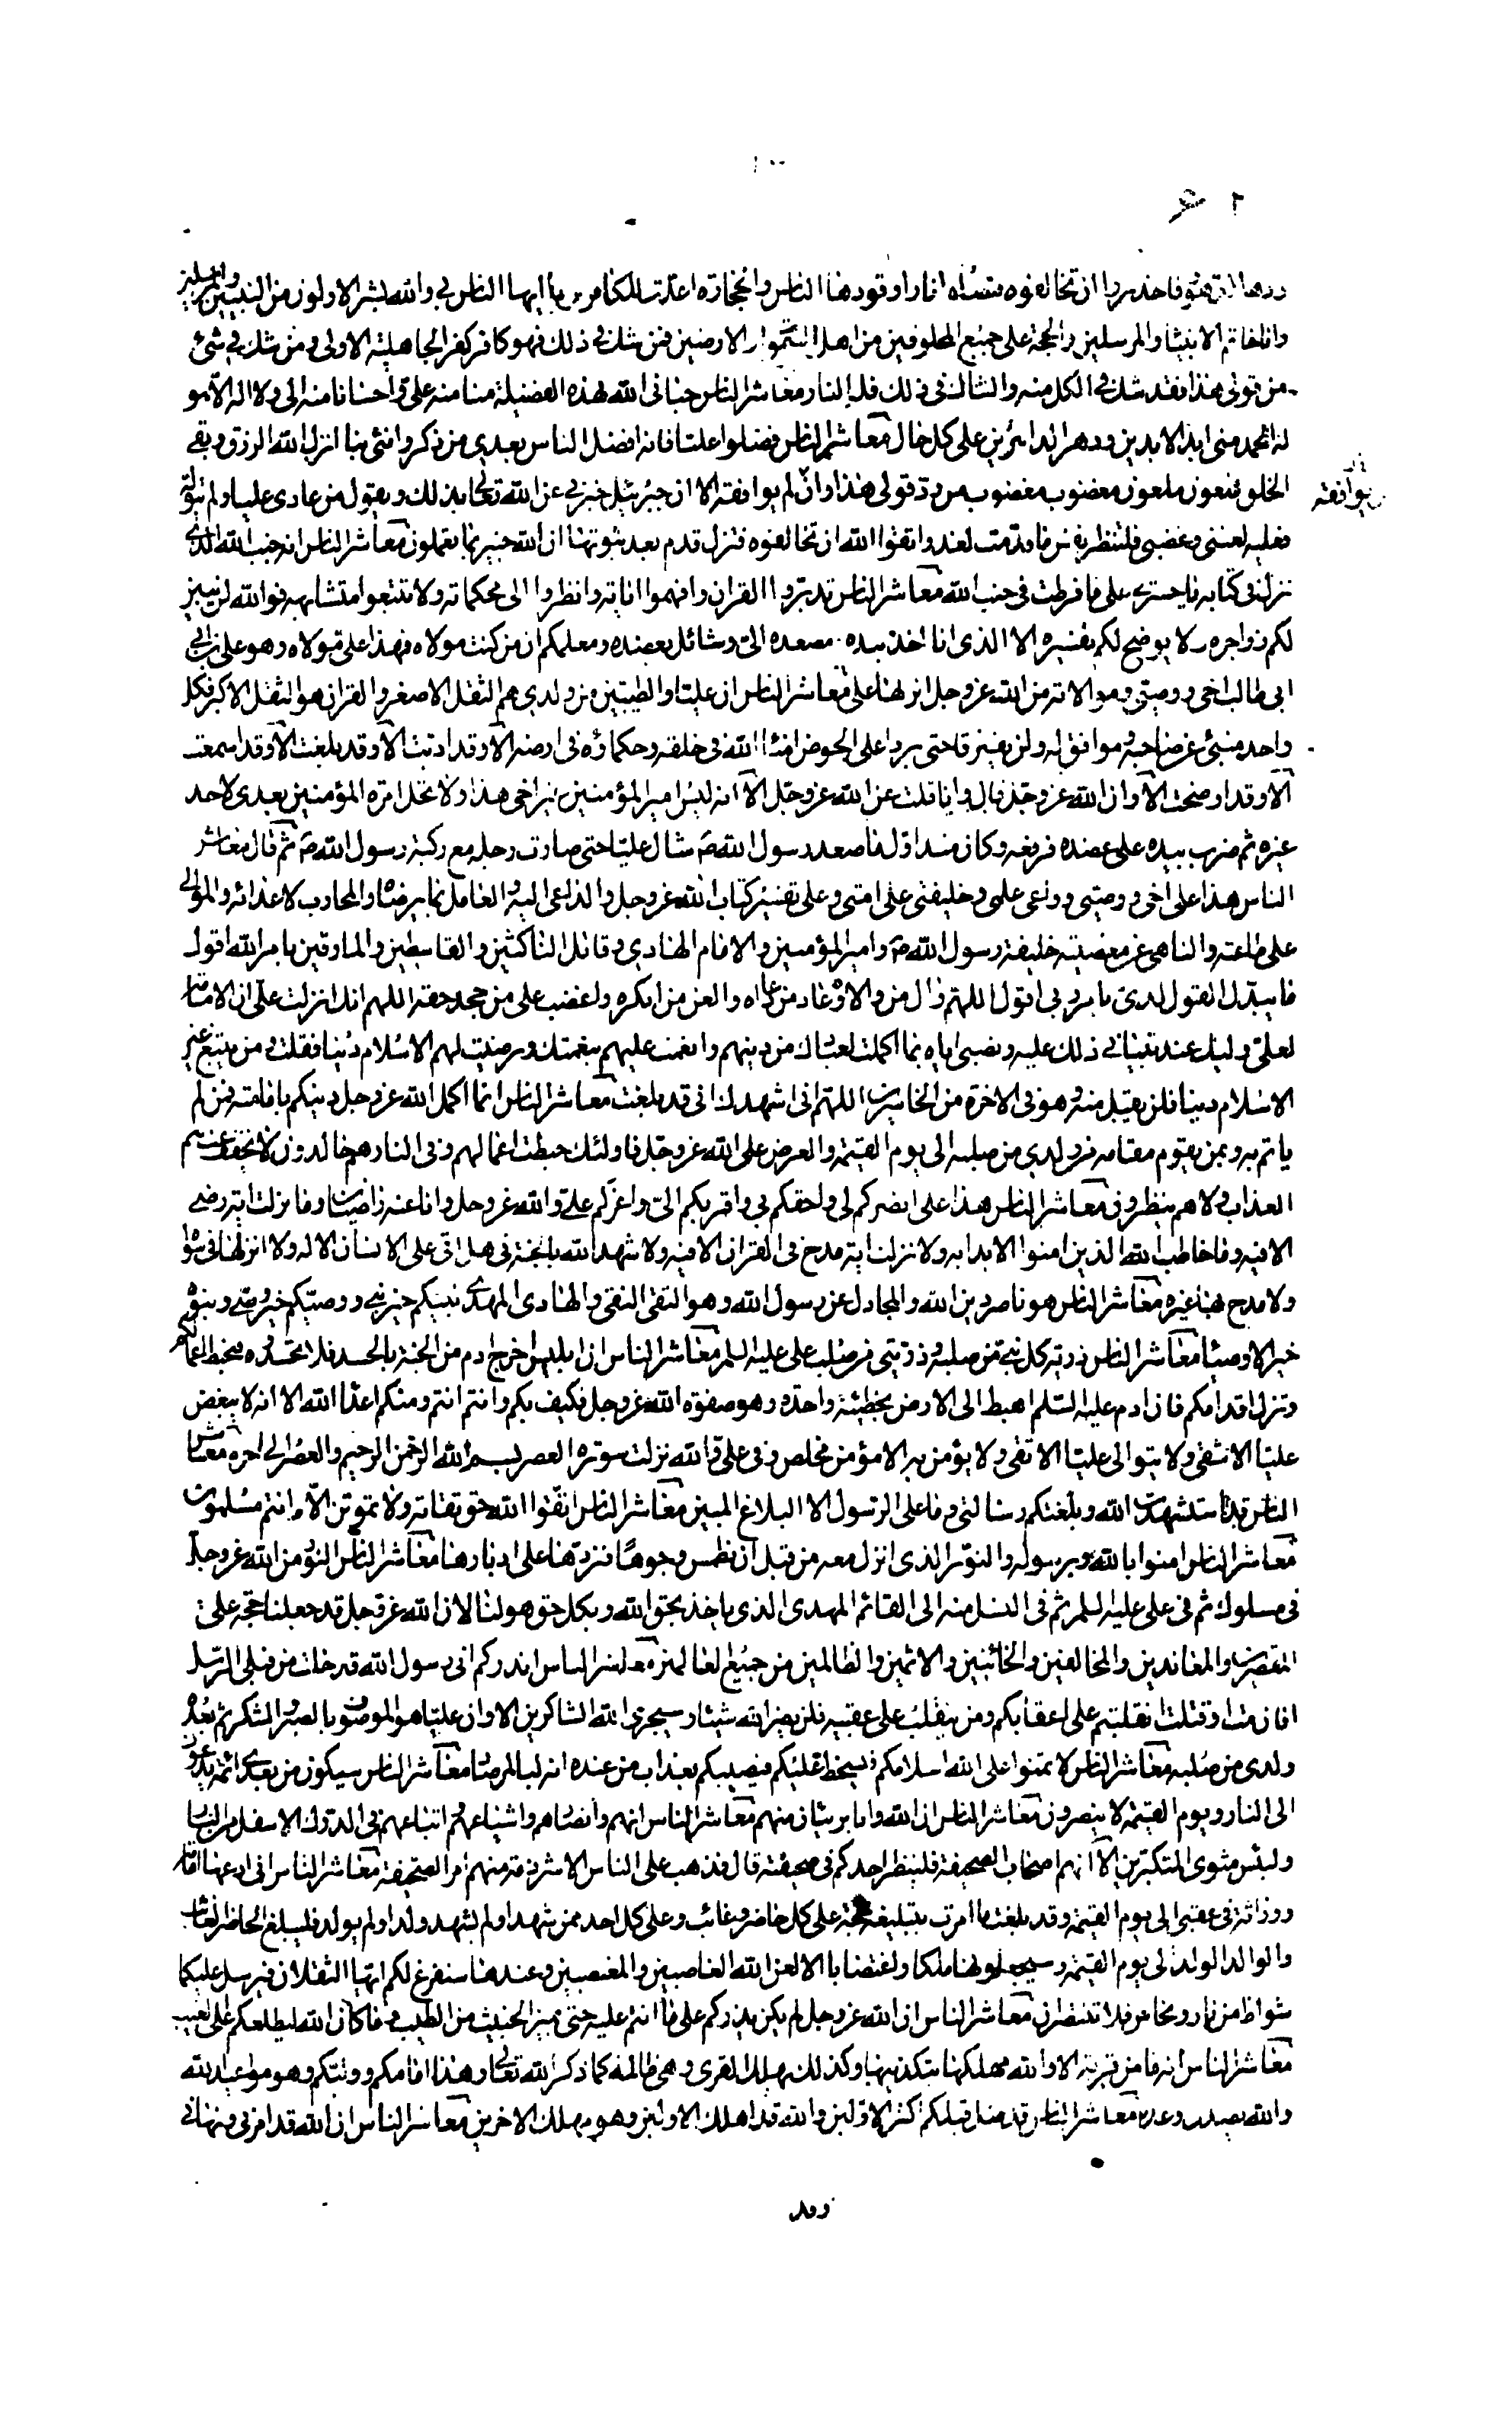 ١٠٠
٢
دهر الدهور فاحذروا ان تخالفوه فتصلوا نارا وقودها الناس والحجارة اعدت للكافرين ايها الناس بي والله بشر الاولون من النبيين والمرسلين
وانا خاتم الانبياء والمرسلين والحجة على جميع المخلوقين من اهل السموات والارضين فمن شك في ذلك فهو كافر كفر الجاهلية الاولى ومن شك في شئ
من قولي هذا فقد شك في الكل منه والشاك في ذلك فله النار معاشر الناس حباني الله بهذه الفضيلة منا منه علي واحسانا منه الي ولا اله الا هو
له الحمد مني ابد الابدين ودهر الداهرين على كل حال معاشر الناس فضلوا عليا فانه افضل الناس بعدي من ذكر وانثى بنا انزل الله الرزق وبقي
الخلق ملعون ملعون مغضوب مغضوب من رد قولي هذا وان لم يوافقه الا ان جبرئيل خبرني عن الله تعالى بذلك ويقول من عادى عليا ولم يتوله
يوافقه
فعليه لعنتي وغضبي فلتنظر نفس ما قدمت لغد واتقوا الله ان تخالفوه فتزل قدم بعد ثبوتها ان الله خبير بما تعملون معاشر الناس انه جنب الله الذي
نزل في كتابه يا حسرتى على ما فرطت في جنب الله معاشر الناس تدبروا القران وافهموا اياته وانظروا الى محكماته ولا تتبعوا متشابهه فوالله لن يبين
لكم زواجره ولا يوضح لكم تفسيره الا الذي انا اخذ بيده ومصعده الي وشائل بعضده ومعلمكم ان من كنت مولاه فهذا علي مولاه وهو علي بن
ابي طالب اخي ووصيي وموالاته من الله عز وجل انزلها علي معاشر الناس ان عليا والطيبين من ولدي هم الثقل الاصغر والقران هو الثقل الاكبر فكل
واحد منبئ عن صاحبه وموافق له ولن يفترقا حتى يردا علي الحوض امناء الله في خلقه وحكماؤه في ارضه الا وقد اديت الا وقد بلغت الا وقد اسمعت
الا وقد اوضحت الا وان الله عز وجل قال وانا قلت عن الله عز وجل الا انه ليس امير المؤمنين غير اخي هذا ولا تحل امرة المؤمنين بعدي لاحد
غيره ثم ضرب بيده على عضده فرفعه وكان منذ اول ما صعد رسول الله ص شال عليا حتى صارت رجله مع ركبة رسول الله ص ثم قال معاشر
الناس هذا علي اخي ووصيي وواعي علمي وخليفتي على امتي وعلى تفسير كتاب الله عز وجل والداعي اليه والعامل بما يرضاه والمحارب لاعدائه والموالي
على طاعته والناهي عن معصيته خليفة رسول الله ص وامير المؤمنين والامام الهادي وقاتل الناكثين والقاسطين والمارقين بامر الله اقول
ما يبدل القول لدي بامر ربي اقول اللهم وال من والاه وعاد من عاداه والعن من انكره واغضب على من جحد حقه اللهم انك انزلت علي ان الامامة
لعلي وليك عند تبياني ذلك عليه ونصبي اياه بما اكملت لعبادك من دينهم واتممت عليهم نعمتك ورضيت لهم الاسلام دينا فقلت ومن يبتغ غير
الاسلام دينا فلن يقبل منه وهو في الاخرة من الخاسرين اللهم اني اشهدك اني قد بلغت معاشر الناس انما اكمل الله عز وجل دينكم بامامته فمن لم
ياتم به وبمن يقوم مقامه من ولدي من صلبه الى يوم القيمة والعرض على الله عز وجل فاولئك حبطت اعمالهم وفي النار هم خالدون لا يخفف عنهم
العذاب ولا هم ينظرون معاشر الناس هذا علي انصركم لي واحقكم بي واقربكم الي واعزكم علي والله عز وجل وانا عنه راضيان وما نزلت اية رضى
الا فيه وما خاطب الله الذين امنوا الا بدا به ولا نزلت اية مدح في القران الا فيه ولا شهد الله بالجنة في هل اتى على الانسان الا له ولا انزلها في سواه
ولا مدح بها غيره معاشر الناس هو ناصر دين الله والمجادل عن رسول الله وهو التقي النقي والهادي المهدي نبيكم خير نبي ووصيكم خير وصي وبنوه
خير الاوصياء معاشر الناس ذرية كل نبي من صلبه وذريتي من صلب علي عليه السلم معاشر الناس ان ابليس اخرج ادم من الجنة بالحسد فلا تحسدوه فتحبط اعمالكم
وتزل اقدامكم فان ادم عليه السلم اهبط الى الارض بخطيئة واحدة وهو صفوة الله عز وجل فكيف بكم وانتم انتم ومنكم اعداء الله الا انه لا يبغض
عليا الا شقي ولا يتوالى عليا الا تقي ولا يؤمن به الا مؤمن مخلص وفي علي والله نزلت سورة العصر بسم الله الرحمن الرحيم والعصر الى اخره معاشر
الناس قد استشهدت الله وبلغتكم رسالتي وما على الرسول الا البلاغ المبين معاشر الناس اتقوا الله حق تقاته ولا تموتن الا وانتم مسلمون
معاشر الناس امنوا بالله وبرسوله والنور الذي انزل معه من قبل ان نطمس وجوها فنردها على ادبارها معاشر الناس النور من الله عز وجل
في مسلوك ثم في علي عليه السلم ثم في النسل منه الى القائم المهدي الذي ياخذ بحق الله وبكل حق هو لنا لان الله عز وجل قد جعلنا حجة على
المقصرين والمعاندين والمخالفين والخائنين والاثمين والظالمين من جميع العالمين معاشر الناس انذركم اني رسول الله قد خلت من قبلي الرسل
افان مت او قتلت انقلبتم على اعقابكم ومن ينقلب على عقبيه فلن يضر الله شيئا وسيجزي الله الشاكرين الا وان عليا هو الموصوف بالصبر والشكر ثم بعده
ولدي من صلبه معاشر الناس لا تمنوا على الله اسلامكم فيسخط عليكم فيصيبكم بعذاب من عنده انه لبالمرصاد معاشر الناس سيكون من بعدي ائمة يدعون
الى النار ويوم القيمة لا ينصرون معاشر الناس ان الله وانا بريئان منهم معاشر الناس انهم وانصارهم واشياعهم واتباعهم في الدرك الاسفل من النار
ولبئس مثوى المتكبرين الا انهم اصحاب الصحيفة فلينظر احدكم في صحيفته قال فذهب على الناس الا شرذمة منهم امر الصحيفة معاشر الناس اني ادعها امامة
ووراثة في عقبي الى يوم القيمة وقد بلغت ما امرت بتبليغه حجة على كل حاضر وغائب وعلى كل احد ممن شهد او لم يشهد ولد او لم يولد فليبلغ الحاضر الغائب
والوالد الولد الى يوم القيمة وسيجعلونها ملكا واغتصابا الا لعن الله الغاصبين والمغتصبين وعندها سنفرغ لكم ايها الثقلان فيرسل عليكما
شواظ من نار ونحاس فلا تنتصران معاشر الناس ان الله عز وجل لم يكن يذركم على ما انتم عليه حتى يميز الخبيث من الطيب وما كان الله ليطلعكم على الغيب
معاشر الناس انه ما من قرية الا والله مهلكها بتكذيبها وكذلك يهلك القرى وهي ظالمة كما ذكر الله تعالى وهذا امامكم ووليكم وهو مواعيد الله
والله يصدق وعده معاشر الناس قد ضل قبلكم اكثر الاولين والله قد اهلك الاولين وهو مهلك الاخرين معاشر الناس ان الله قد امرني ونهاني
وقد